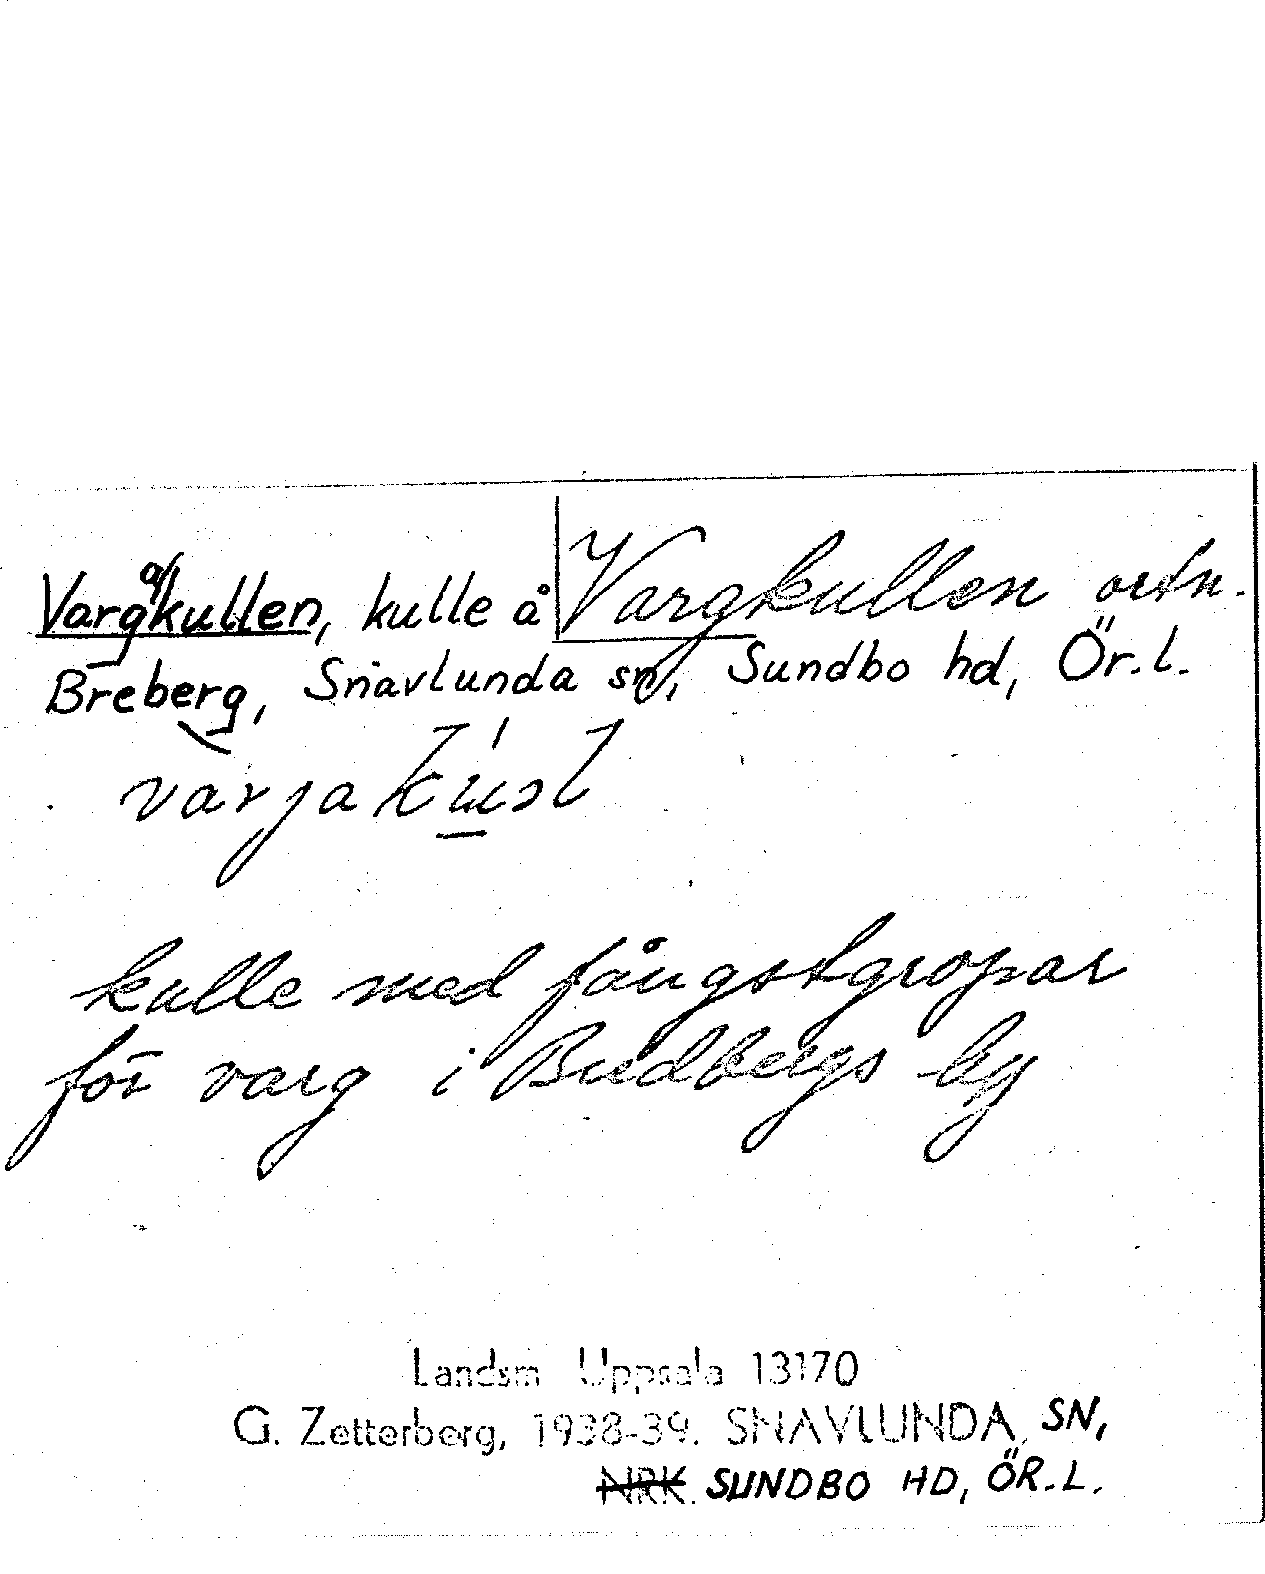 Vargakullen, kulle å Vargkullen ortn.
Breberg, Snavlunda sn, Sundbo hd, Ör.l.
kulle med fångstgropar
för varg i Bredbergs by
Landsm Uppsala 13170
G. Zetterberg, 1938-39. SNAVLUNDA SN,
NRK. SUNDBO HD, ÖR.L.